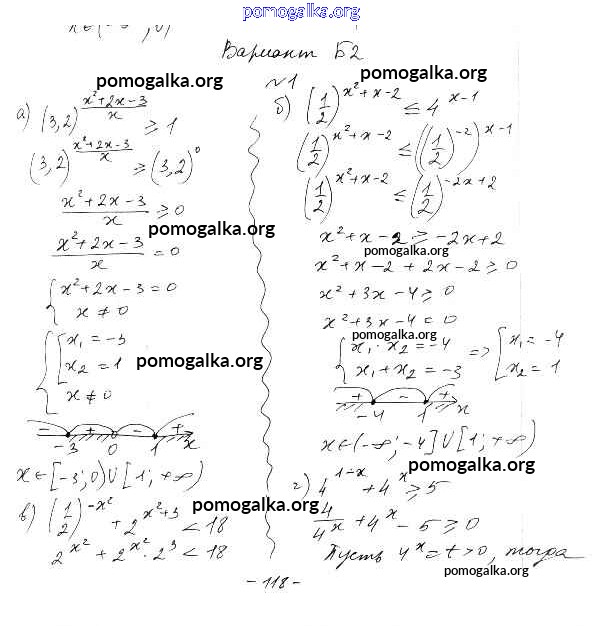 pomogalka.org
x∈(-3; 0)
Вариант Б2
№1
pomogalka.org
а) (3,2)^((x²+2x-3)/x) ≥ 1
(3,2)^((x²+2x-3)/x) ≥ (3,2)⁰
(x²+2x-3)/x ≥ 0
pomogalka.org
(x²+2x-3)/x = 0
{ x²+2x-3=0
x≠0
{ [ x₁=-3
x₂=1 pomogalka.org
x≠0
- + - +
-3 0 1 x
x∈[-3; 0)∪[1; +∞)
в) (1/2)^(-x²) + 2^(x²+3) < 18
pomogalka.org
2^(x²) + 2^(x²)·2³ < 18
pomogalka.org
б) (1/2)^(x²+x-2) ≤ 4^(x-1)
(1/2)^(x²+x-2) ≤ ((1/2)^(-2))^(x-1)
(1/2)^(x²+x-2) ≤ (1/2)^(-2x+2)
x²+x-2 ≥ -2x+2
pomogalka.org
x²+x-2+2x-2 ≥ 0
x²+3x-4 ≥ 0
x²+3x-4=0
pomogalka.org
{ x₁·x₂=-4 => [ x₁=-4
x₁+x₂=-3 x₂=1
+ - +
-4 1 x
x∈(-∞; -4]∪[1; +∞)
г) 4^(1-x) + 4^x ≥ 5
4/4^x + 4^x - 5 ≥ 0
Пусть 4^x = t > 0, тогда
pomogalka.org
- 118 -